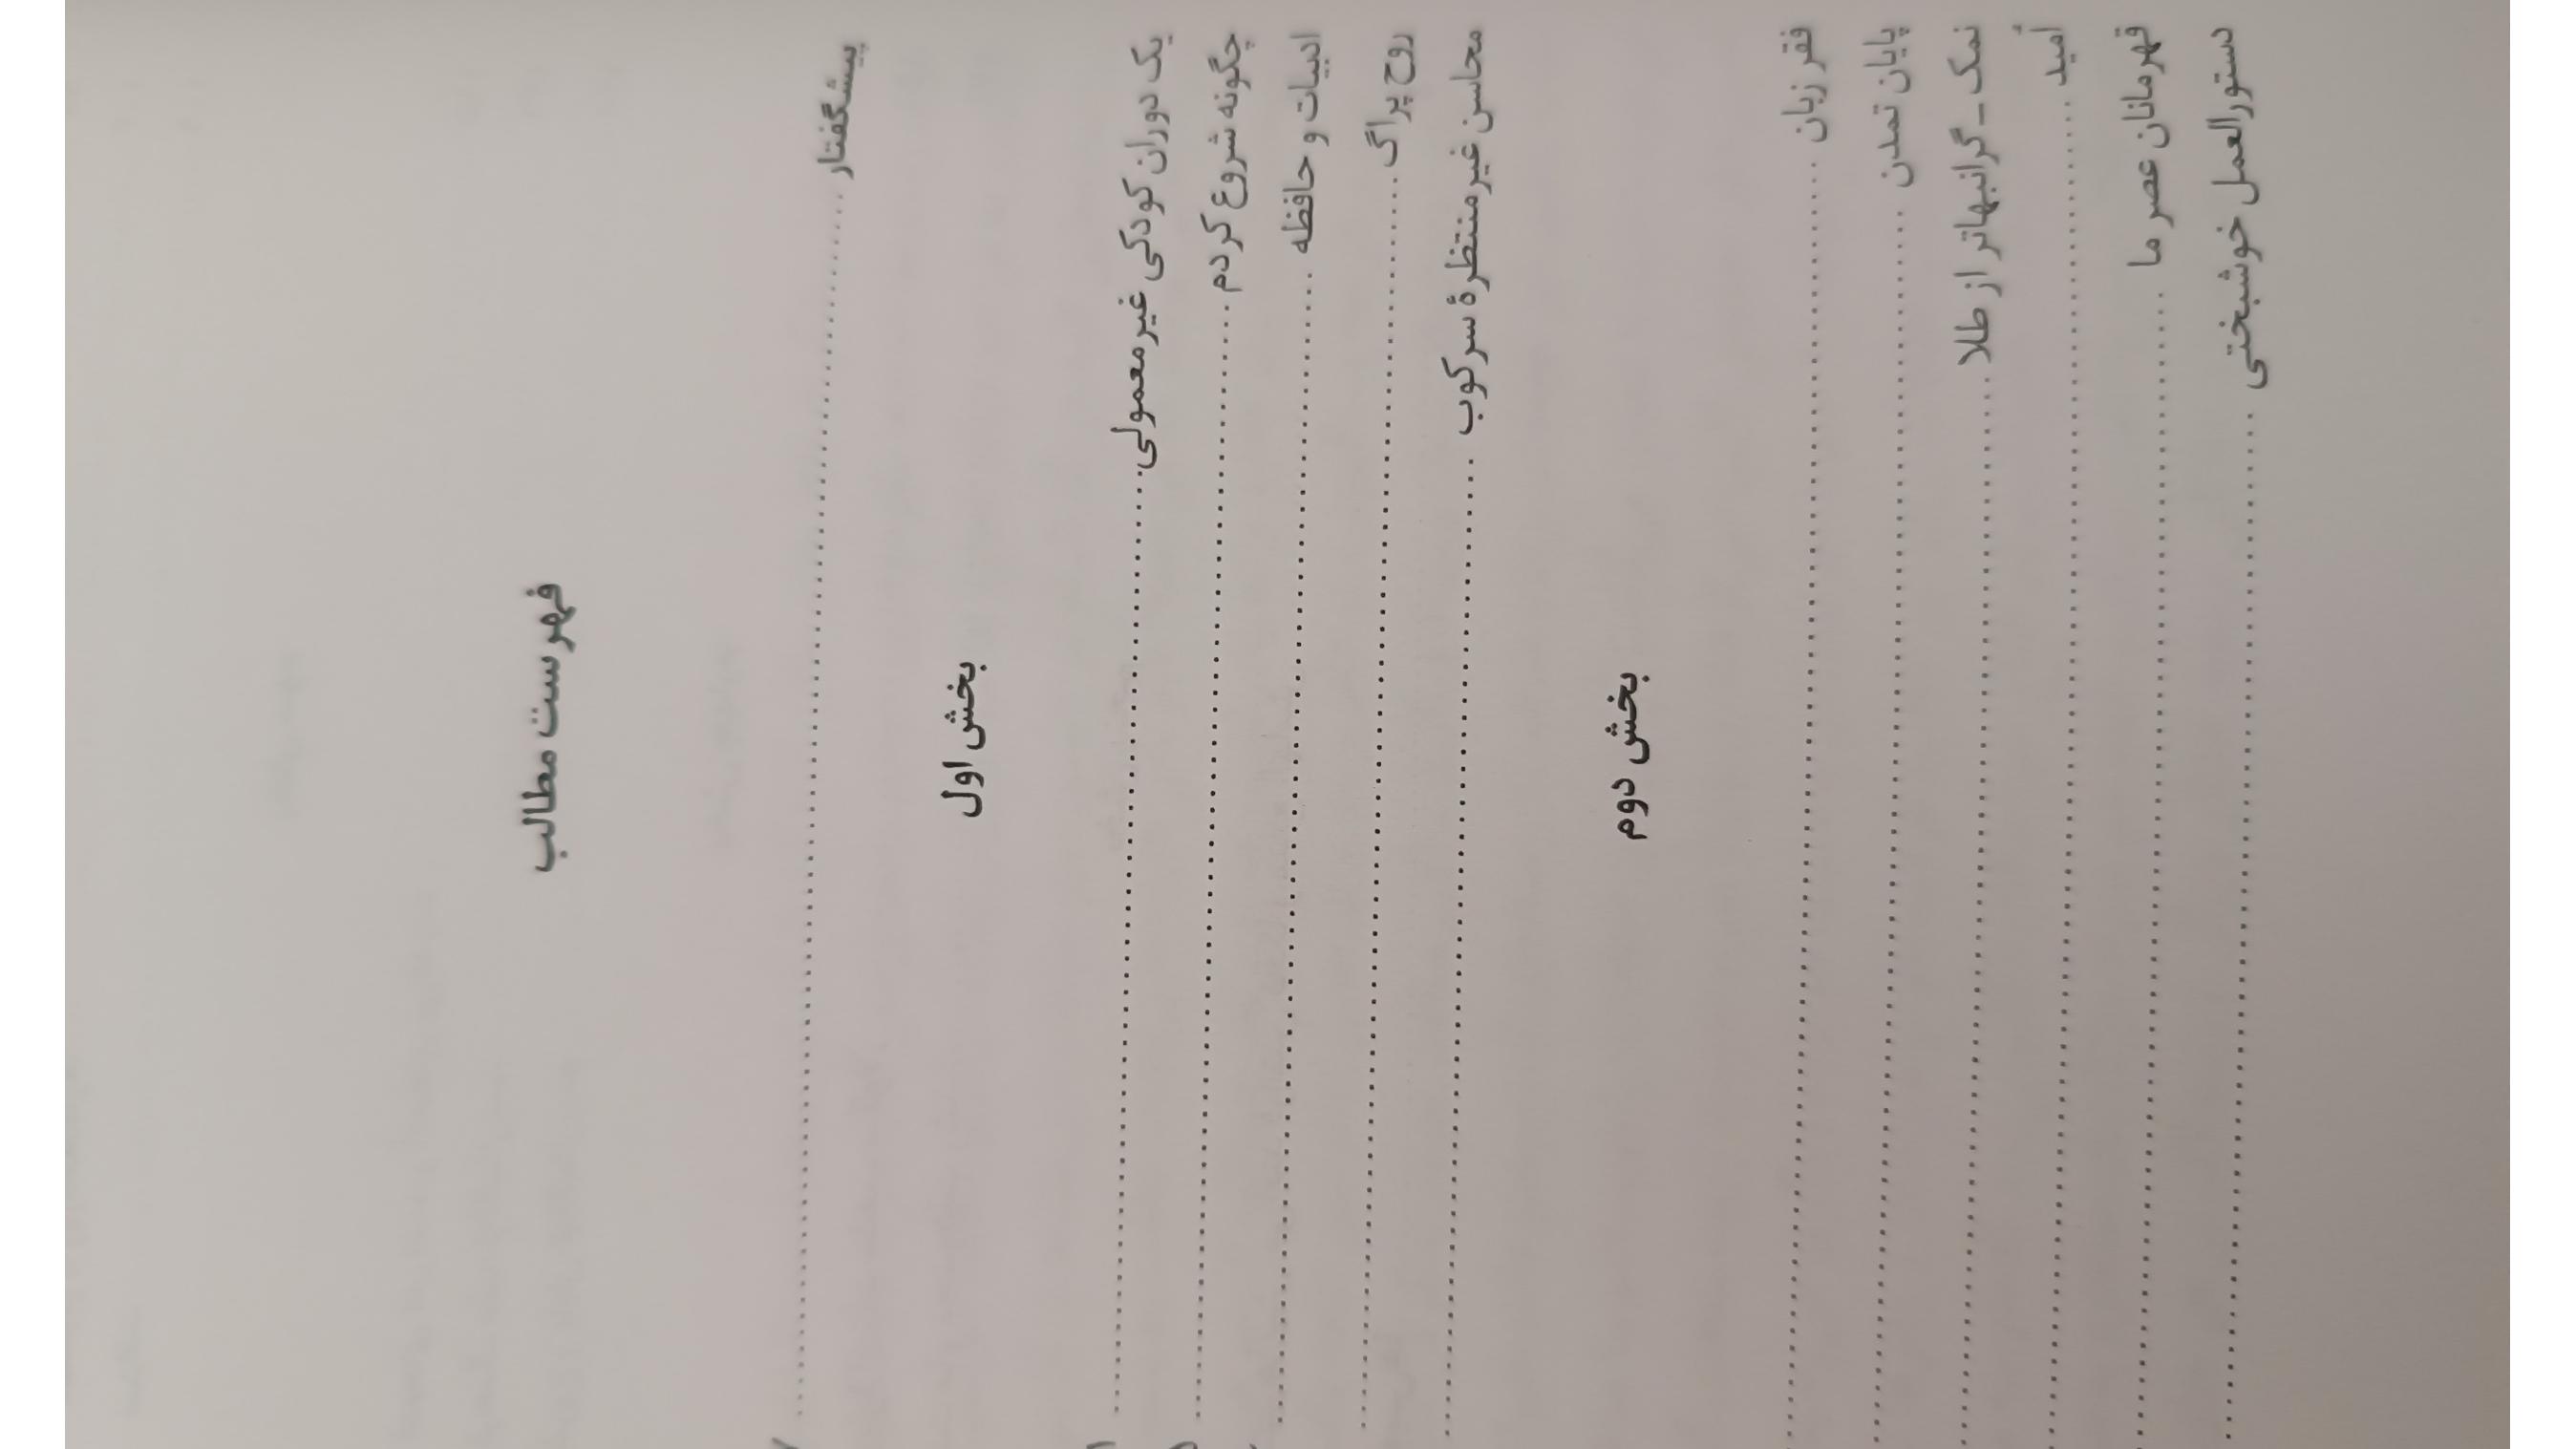 فهرست مطالب
پیشگفتار
بخش اول
یک دوران کودکی غیرمعمولی
چگونه شروع کردم
ادبیات و حافظه
روح پراگ
محاسن غیرمنتظرهٔ سرکوب
بخش دوم
فقر زبان
پایان تمدن
نمک ـ گرانبهاتر از طلا
اُمید
قهرمانان عصر ما
دستورالعمل خوشبختی